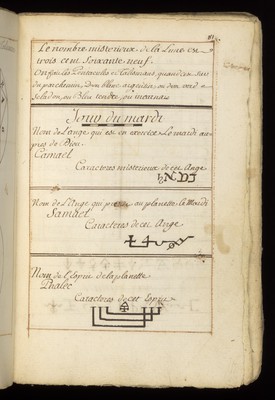 81
Le nombre misterieux de la Lune est
trois cent soixante neuf.
On fait les Pentacelles et Talismans quand on sur
du parchemin, d'un blanc argentin, ou d'un verd
Seladon, ou Bleu tendre, ou
Jour du mardi
Nom de Lange qui est en exercice Le mardi au
pres de Dieu.
Camael
Caracteres misterieux de cet Ange
Nom de L'Ange qui preside au planette le Mardi
Samael
Caracteres de cet Ange
Nom de l'Esprit de la planette
Phaleg
Caracteres de cet Esprit